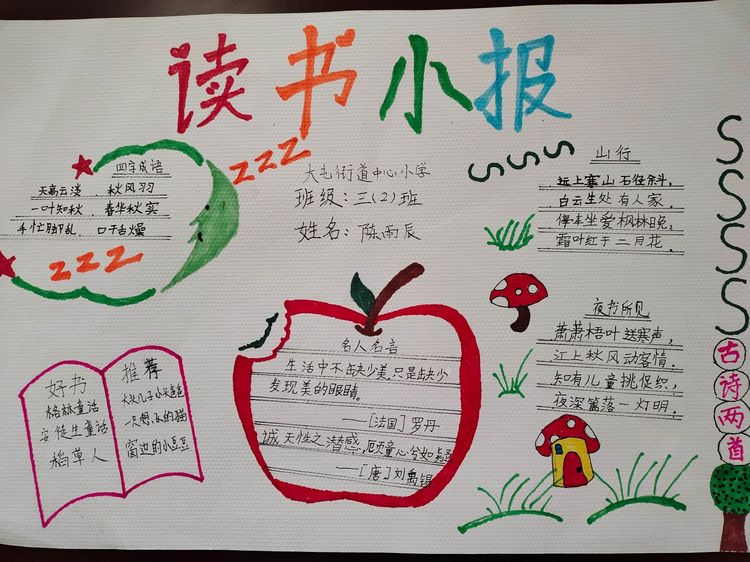 读书小报
四字成语
天高云淡 秋风习
一叶知秋 春华秋实
手忙脚乱 口干舌燥
zzz
zzz
大屯街道中心小学
班级：三(2)班
姓名：陈雨辰
SSS
山行
远上寒山石径斜，
白云生处有人家。
停车坐爱枫林晚，
霜叶红于二月花。
SSSS
名人名言
生活中不是缺少美,只是缺少
发现美的眼睛。
——[法国]罗丹
诚天性之潜感,
——[唐]刘禹锡
夜书所见
萧萧梧叶送寒声，
江上秋风动客情。
知有儿童挑促织，
夜深篱落一灯明。
古诗两首
好书
格林童话
安徒生童话
稻草人
推荐
大头儿子小头爸爸
一只想飞的猫
窗边的小豆豆